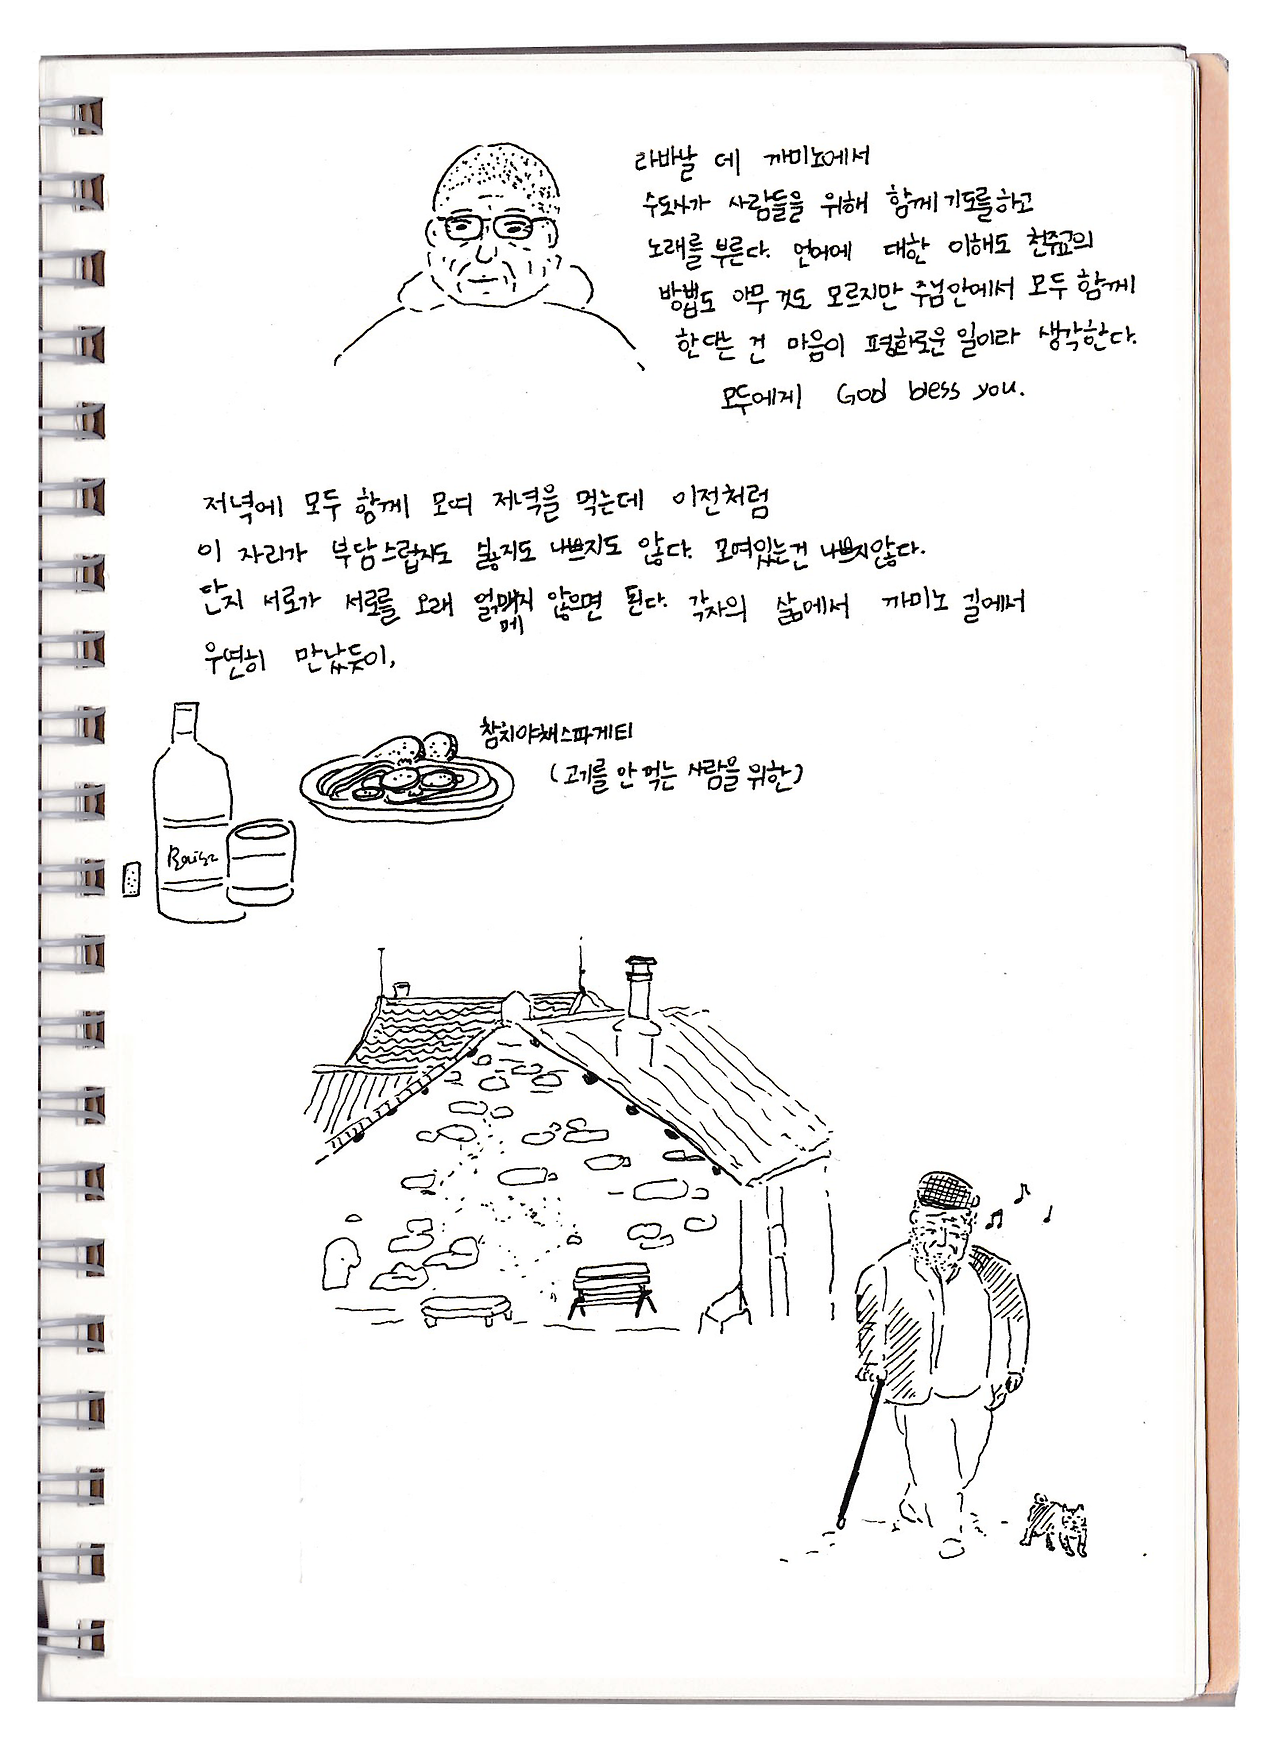 라바날 데 까미노에서
수도사가 사람들을 위해 함께 기도를하고
노래를 부른다. 언어에 대한 이해도 천주교의
방법도 아무 것도 모르지만 주님안에서 모두 함께
한다는 건 마음이 평화로운 일이라 생각한다.
모두에게 God bless you.
저녁에 모두 함께 모여 저녁을 먹는데 이전처럼
이 자리가 부담스럽지도 싫지도 나쁘지도 않다. 모여있는건 나쁘지않다.
단지 서로가 서로를 오래 않으면 된다. 각자의 삶에서 까미노 길에서
우연히 만났듯이,
참치야채스파게티
(고기를 안 먹는 사람을 위한)